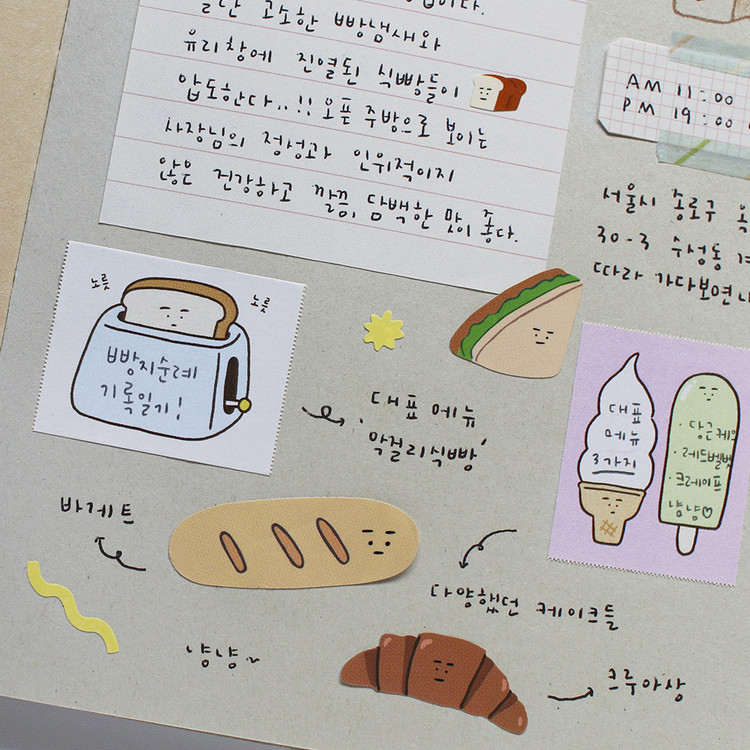 고소한 빵냄새와
유리창에 진열된 식빵들이
압도한다..!! 오픈 주방으로 보이는
사장님의 정성과 인위적이지
않은 건강하고 깔끔, 담백한 맛이 좋다.
AM 11:00
PM 19:00
서울시 종로구 옥
30-3 수성동 계
따라 가다보면
노릇
노릇
빵지순례
기록일기!
대표 메뉴
'막걸리식빵'
대표
메뉴
3가지
· 당근케이
· 레드벨벳
· 크레이프
냠냠♡
바게트
다양했던 케이크들
냠냠~
크루아상